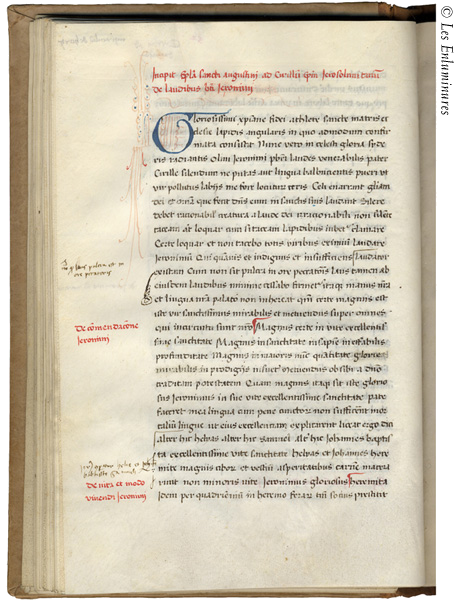 Incipit epla sancti augustini ad Cirillu epm Jerosolimitanu
de laudibus bti Jeronimi
Gloriosissimi xpiane fidei athlete sancte matris ec
clesie lapidis angularis in quo admodum confir
mata consistit Nunc vero in celesti gloria syd
eris radiantis olim Jeronimi pbri laudes venerabilis pater
Cirille silendum me putas aut lingua balbucientis pueri ut
vir pollutis labijs me fore locuturu Celi enarrant gliam
dei et omia que fecit dns dnm in sanctis suis laudant Silere
debet rationabil creatura a laude dei irrationabili non silente
taceam an loquar cum si taceam lapidibus iubet clamare
Certe loquar et non tacebo totis viribus eximiu laudare
Jeronimu Qui quavis et indignus et insufficiens laudator
existam Cum non sit pulcra in ore peccatoris laus tamen ab
eiusdem laudibus minime cessabo firmet itaq manus nra
et lingua nra palato non inhereat qm certe magnus est
iste vir sanctissimus mirabilis et metuendus super omnes
qui in circuitu sunt nro Magnus certe in vite excellentis
sime sanctitate Magnus in sanctitate sapie ineffabilis
profunditate Magnus in maioris nuc quantitate glorie
mirabilis in prodigijs metuendus ob sibi a dno
traditam potestatem Quam magnus itaq sit iste glorio
sus Jeronimus in sue vite excellentissime sanctitate pate
faceret mea lingua cum pene cunctor non sufficerent mor
talium lingue ut eius excellentiam explicarent liceat ergo dici
alter hic helyas alter hic samuel alt hic Johannes baptis
ta excellentissime vite sanctitate helyas et Johannes here
mite magnis cibor et vestiu asperitatibus carne macera
runt non minoris vite Jeronimus gloriosus heremita
Idem per quadrieniu in heremo ferar tm socius prestitit
De comendacione
Jeronimi
De vita et modo
vivendi Jeronimi
© Les Enluminures